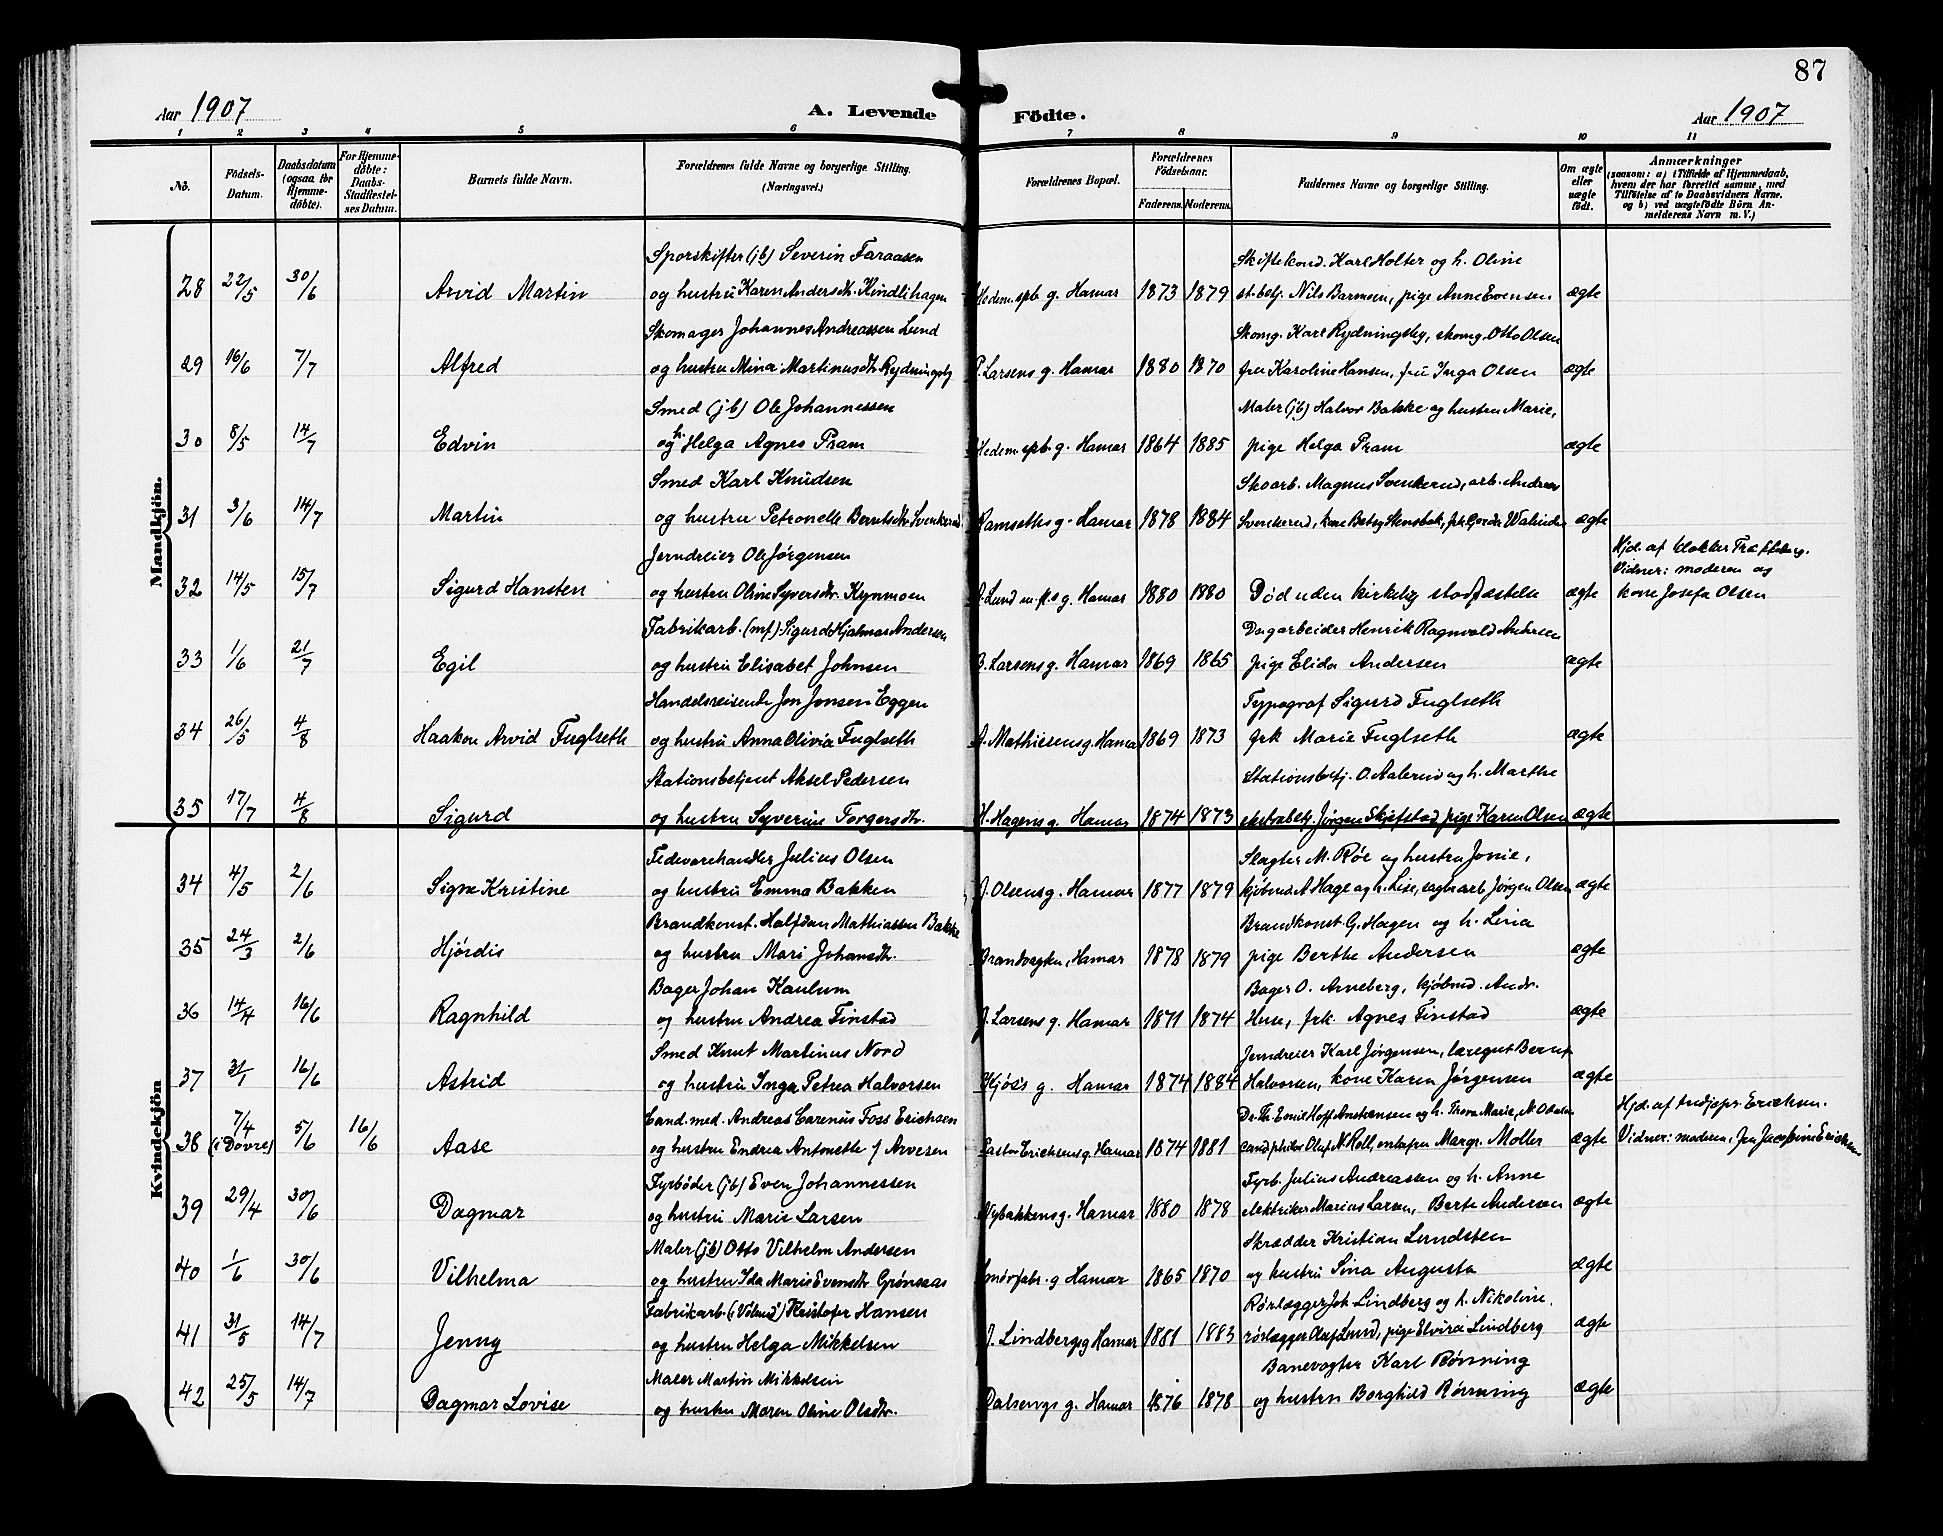 87
Aar 1907 A. Levende Fødte. Aar 1907
1 2 3 4 5 6 7 8 9 10 11
No. Fødsels-Datum. Daabsdatum (ogsaa for Hjemmedøbte). For Hjemmedøbte: Daabs-Stadfæstelses Datum. Barnets fulde Navn. Forældrenes fulde Navne og borgerlige Stilling. (Næringsvei.) Forældrenes Bopæl. Forældrenes Fødselsaar. Faderens. Moderens. Faddernes Navne og borgerlige Stilling. Om ægte eller uægte født. Anmærkninger (saasom: a) i Tilfælde af Hjemmedaab, hvem der har forrettet samme, med Tilføielse af to Daabsvidners Navne. og b) ved uægtefødte Børn Anmelderens Navn m. V.)
Mandkjön.
Sporskifter (jb) Severin Faraasen Skiftekond. Karl Holter og h. Oline
28 22/5 30/6 Arvid Martin og hustru Karen Andersdtr. Kindlihagen Hedem. spb. g. Hamar 1873 1879 st.betj. Nils Barmsen, pige Anne Evensen ægte
Skomager Johannes Andreassen Lund Skomg. Karl Rydningsby, skomg. Otto Olsen
29 16/6 7/7 Alfred og hustru Mina Martinusdtr. Rydningsby P. Larsens g. Hamar 1880 1870 fru Karoline Hansen, frü Inga Olsen ægte
Smed (jb) Ole Johannessen Maler (jb) Halvor Bakke og hustru Marie,
30 8/5 14/7 Edvin og h. Helga Agnes Pram Hedem. spb. g. Hamar 1864 1885 pige Helga Pram ægte
Smed Karl Knudsen Skoarb. Magnus Svenkerud, arb. Anders
31 3/6 14/7 Martin og hustru Petronelle Berntsdtr. Svenkerud Ramseths g. Hamar 1878 1884 Svenkerud, kone Betsy Stensbak, ægte
Jerndreier Ole Jørgensen Hjd. af klokker
32 14/5 15/7 Sigurd Hansten og hustru Oline Syversdtr. Kynmoen Lund g. Hamar 1880 1880 Død uden kirkelig stadfæstelse ægte Vidner: moderen og kone Josefa Olsen
Fabrikarb. (mf) Sigurd Hjalmar Andersen Dagarbeider Henrik Ragnvald Andersen
33 1/6 21/7 Egil og hustru Elisabet Johnsen B. Larsens g. Hamar 1869 1865 pige Elida Andersen ægte
Handelsreisende Jon Jonsen Eggen Typograf Sigurd Fuglseth
34 26/5 4/8 Haakon Arvid Fuglseth og hustru Anna Olivia Fuglseth A. Mathiesens g. Hamar 1869 1873 frk Marie Fuglseth ægte
Stationsbetjent Aksel Pedersen Stationsbetj. O. Aalerud og h. Marthe
35 17/7 4/8 Sigurd og hustru Syverine Torgersdtr. H. Hagens g. Hamar 1874 1873 ekstrabetj. Jørgen Skjefstad, pige Karen Olsen ægte
Kvindekjön
Fedevarehandler Julius Olsen Slagter M. Røe og hustru Jonie,
34 4/5 2/6 Signe Kristine og hustru Emma Bakken J. Olsens g. Hamar 1877 1879 kjøbmd. A. Hage og h. Lise, sagbr.arb Jørgen Olsen ægte
Brandkonst. Halfdan Mathiassen Bakke Brandkonst G. Hagen og h. Lina
35 24/3 2/6 Hjørdis og hustru Mari Johansdtr. Brandvagten, Hamar 1878 1879 pige Berthe Andersen ægte
Bager Johan Kaulum Bager O. Arneberg, kjøbmd. Andr.
36 14/4 16/6 Ragnhild og hustru Andrea Finstad J. Larsens g. Hamar 1871 1874 Huse, frk. Agnes Finstad ægte
Smed Knut Martinus Nord Jerndreier Karl Jørgensen, læregut Bernt
37 31/1 16/6 Astrid og hustru Inga Petrea Halvorsen Kjøs's g. Hamar 1874 1884 Halvorsen, kone Karen Jørgensen ægte
Cand. med. Andreas Carenius Foss Erichsen Dr. Th. Emil Hoff og h. Thora Marie, Hjd. af Erichsen.
38 7/4 (i Dovre) 5/6 16/6 Aase og hustru Endrea Antonette f Arvesen Pastor Erichsens g. Hamar 1874 1881 cand philos Olaf N. Roll, enkefru Margr. Møller ægte Vidner: moderen, fru Josefine Erichsen
Fyrbøder (jb) Even Johannessen Fyrb. Julius Andreassen og h. Anne
39 29/4 30/6 Dagmar og hustru Marie Larsen Nybakkens g. Hamar 1880 1878 elektriker Marius Larsen, Berte Andersen ægte
Maler (jb) Otto Vilhelm Andersen Skrædder Kristian Lundsten
40 1/6 30/6 Vilhelma og hustru Ida Marie Evensdtr. Grønaas Smørfabr. g Hamar 1865 1870 og hustru Sina Augusta ægte
Fabrikarb. (i Vøland) Kristofer Hansen Rørlægger Joh. Lindberg og h. Nikoline.
41 31/5 14/7 Jenny og hustru Helga Mikkelsen J. Lindbergs g Hamar 1881 1883 rørlægger Olaf Lund, pige Elvira Lindberg ægte
Maler Martin Mikkelsen Banevogter Karl Rønning
42 25/5 14/7 Dagmar Lovise og hustru Maren Oline Olsdtr. Dalsengs g. Hamar 1876 1878 og hustru Borghild Rønning ægte